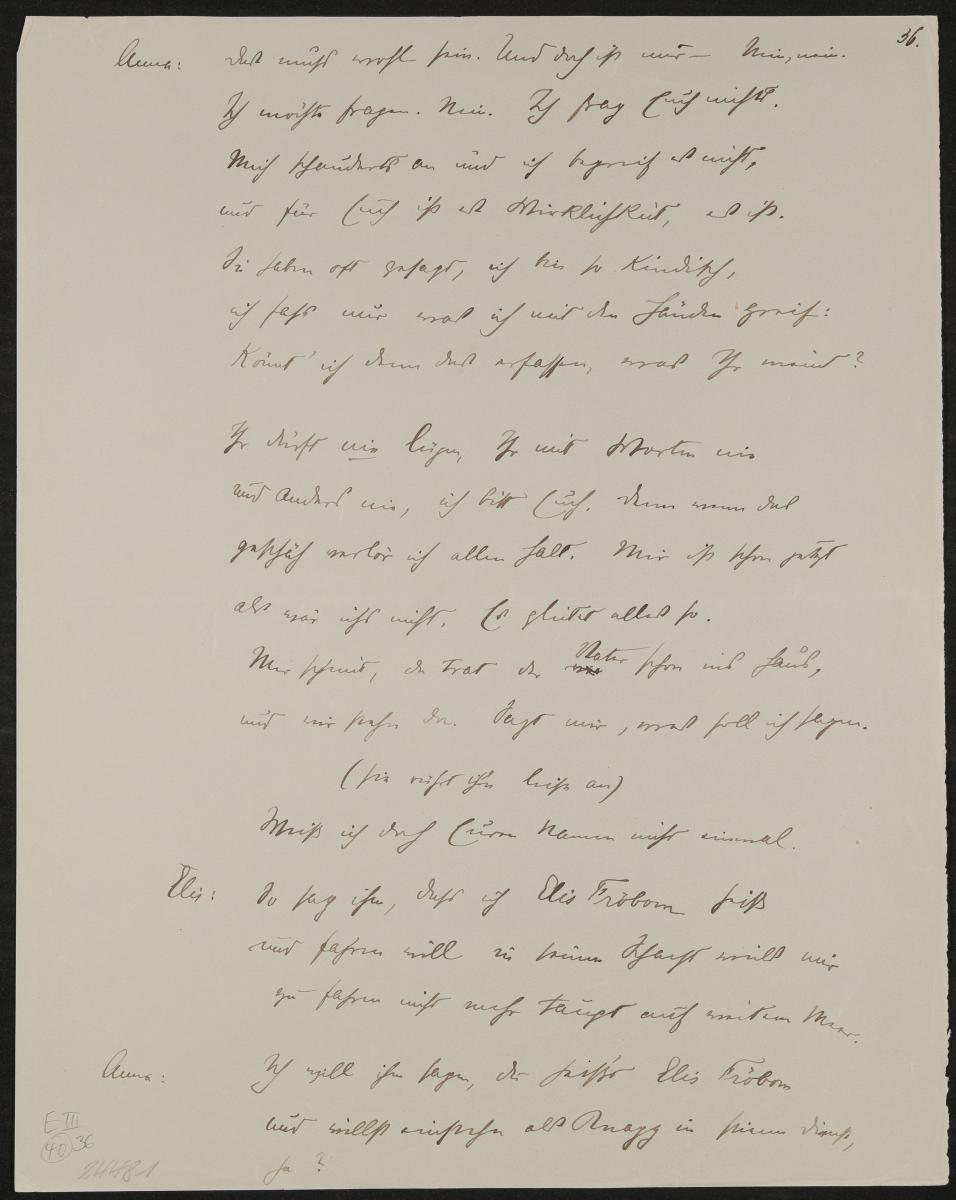 36.
Anna: Das muss wohl sein. Und doch ist mir — Nein, nein.
Ich möchte fragen. Nein. Ich frag Euch nicht.
Mich schauderts an und ich begreif es nicht,
und für Euch ist es Wirklichkeit, es ist.
Sie haben oft gesagt, ich bin so kindisch,
ich fass nur was ich mit den Händen greif:
Könnt' ich denn das erfassen, was Ihr meint?
Ihr dürft nie lügen, Ihr mit Worten nie
und anders nie, ich bitt Euch. Denn wenn das
geschäh verlör ich allen Halt. Mir ist schon jetzt
als wär ichs nicht. Es gleitet alles so.
Mir scheint, da trat der Vater schon ins Haus,
und wir stehn da. Sagt mir, was soll ich sagen.
(sie rührt ihn leise an)
Weiß ich doch Euren Namen nicht einmal.
Elis: So sag ihm, dass ich Elis Fröbom heiß
und fahren will in seinen Schacht weils mir
zu fahren nicht mehr taugt auf weitem Meer.
Anna: Ich will ihm sagen, du heiß't Elis Fröbom
und willst einstehn als Knapp in seinen Dienst,
ja?
E III
40 36
24481